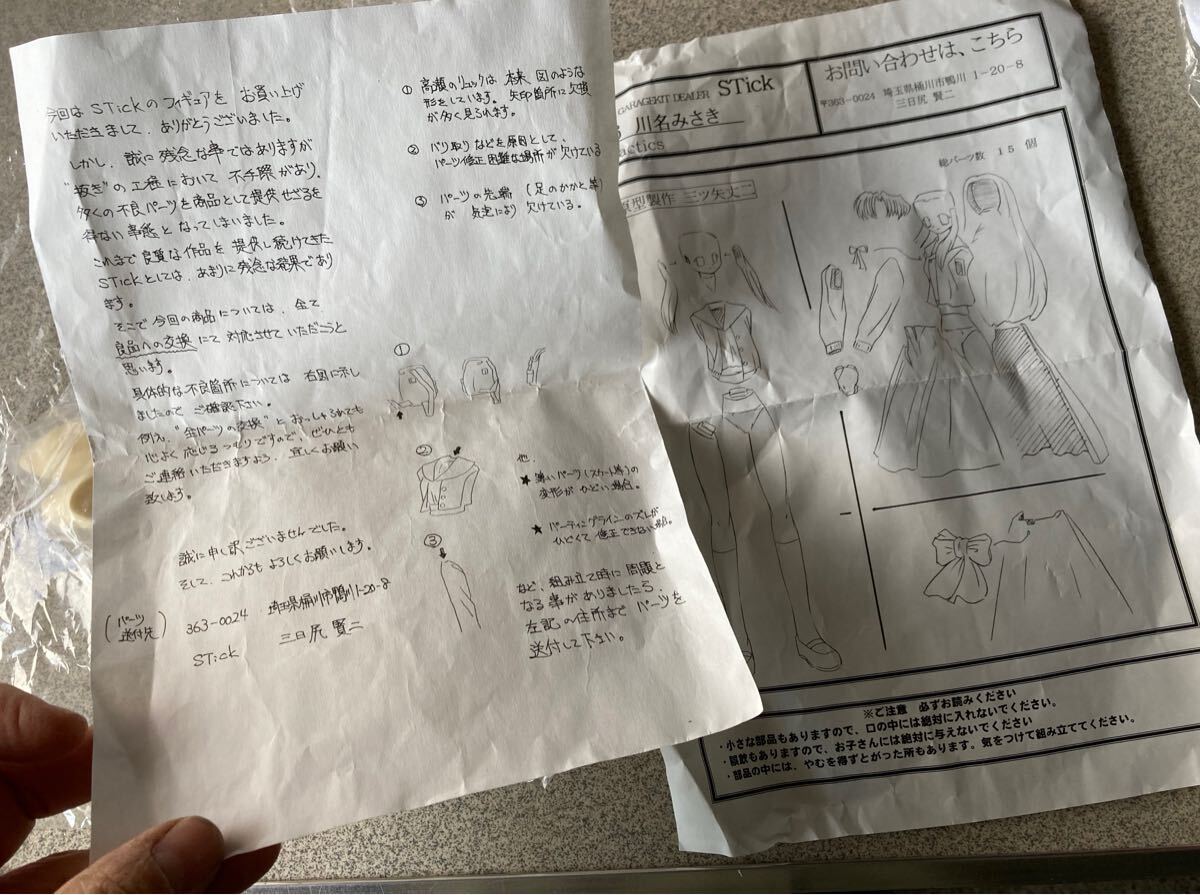 今回は STickのフィギュアを お買い上げ
いただきまして、ありがとうございました。
しかし、誠に残念な事ではありますが
"抜き"の工程において 不手際があり、
多くの不良パーツを商品として提供せざるを
得ない事態となってしまいました。
これまで良質な作品を提供し続けてきた
STickとしては、あまりに残念な結果であり
ます。
そこで今回の商品については、全て
良品への交換にて対応させていただこうと
思います。
具体的な不良箇所については 右図に示し
ましたので ご確認下さい。
例え、"全パーツの交換"とおっしゃられても
心よく応じるつもりですので、ぜひとも
ご連絡いただきますよう、宜しくお願い
致します。
誠に申し訳ございませんでした。
そして、これからもよろしくお願いします。
(パーツ送付先)
363-0024 埼玉県桶川市鴨川1-20-8
STick 三日尻 賢二
① 高瀬のリュックは、本来、図のような
形をしています。矢印箇所に欠損
が多く見られます。
② バリ取りなどを原因として、
パーツ修正困難な場所が欠けている
③ パーツの先端 (足のかかと等)
が 気泡により 欠けている。
①
②
③
他、
★ 薄いパーツ(スカート等)の
変形がひどい場合。
★ パーティングラインのズレが
ひどくて修正できない場合。
など、組み立て時に問題と
なる事がありましたら、
左記の住所までパーツを
送付して下さい。
GARAGEKIT DEALER STick
川名みさき
actics
お問い合わせは、こちら
〒363-0024 埼玉県桶川市鴨川 1-20-8
三日尻 賢二
総パーツ数 15 個
原型製作 三ツ矢丈二
※ご注意 必ずお読みください
・小さな部品もありますので、口の中には絶対に入れないでください。
・誤飲もありますので、お子さんには絶対に与えないでください
・部品の中には、やむを得ずとがった所もあります。気をつけて組み立ててください。